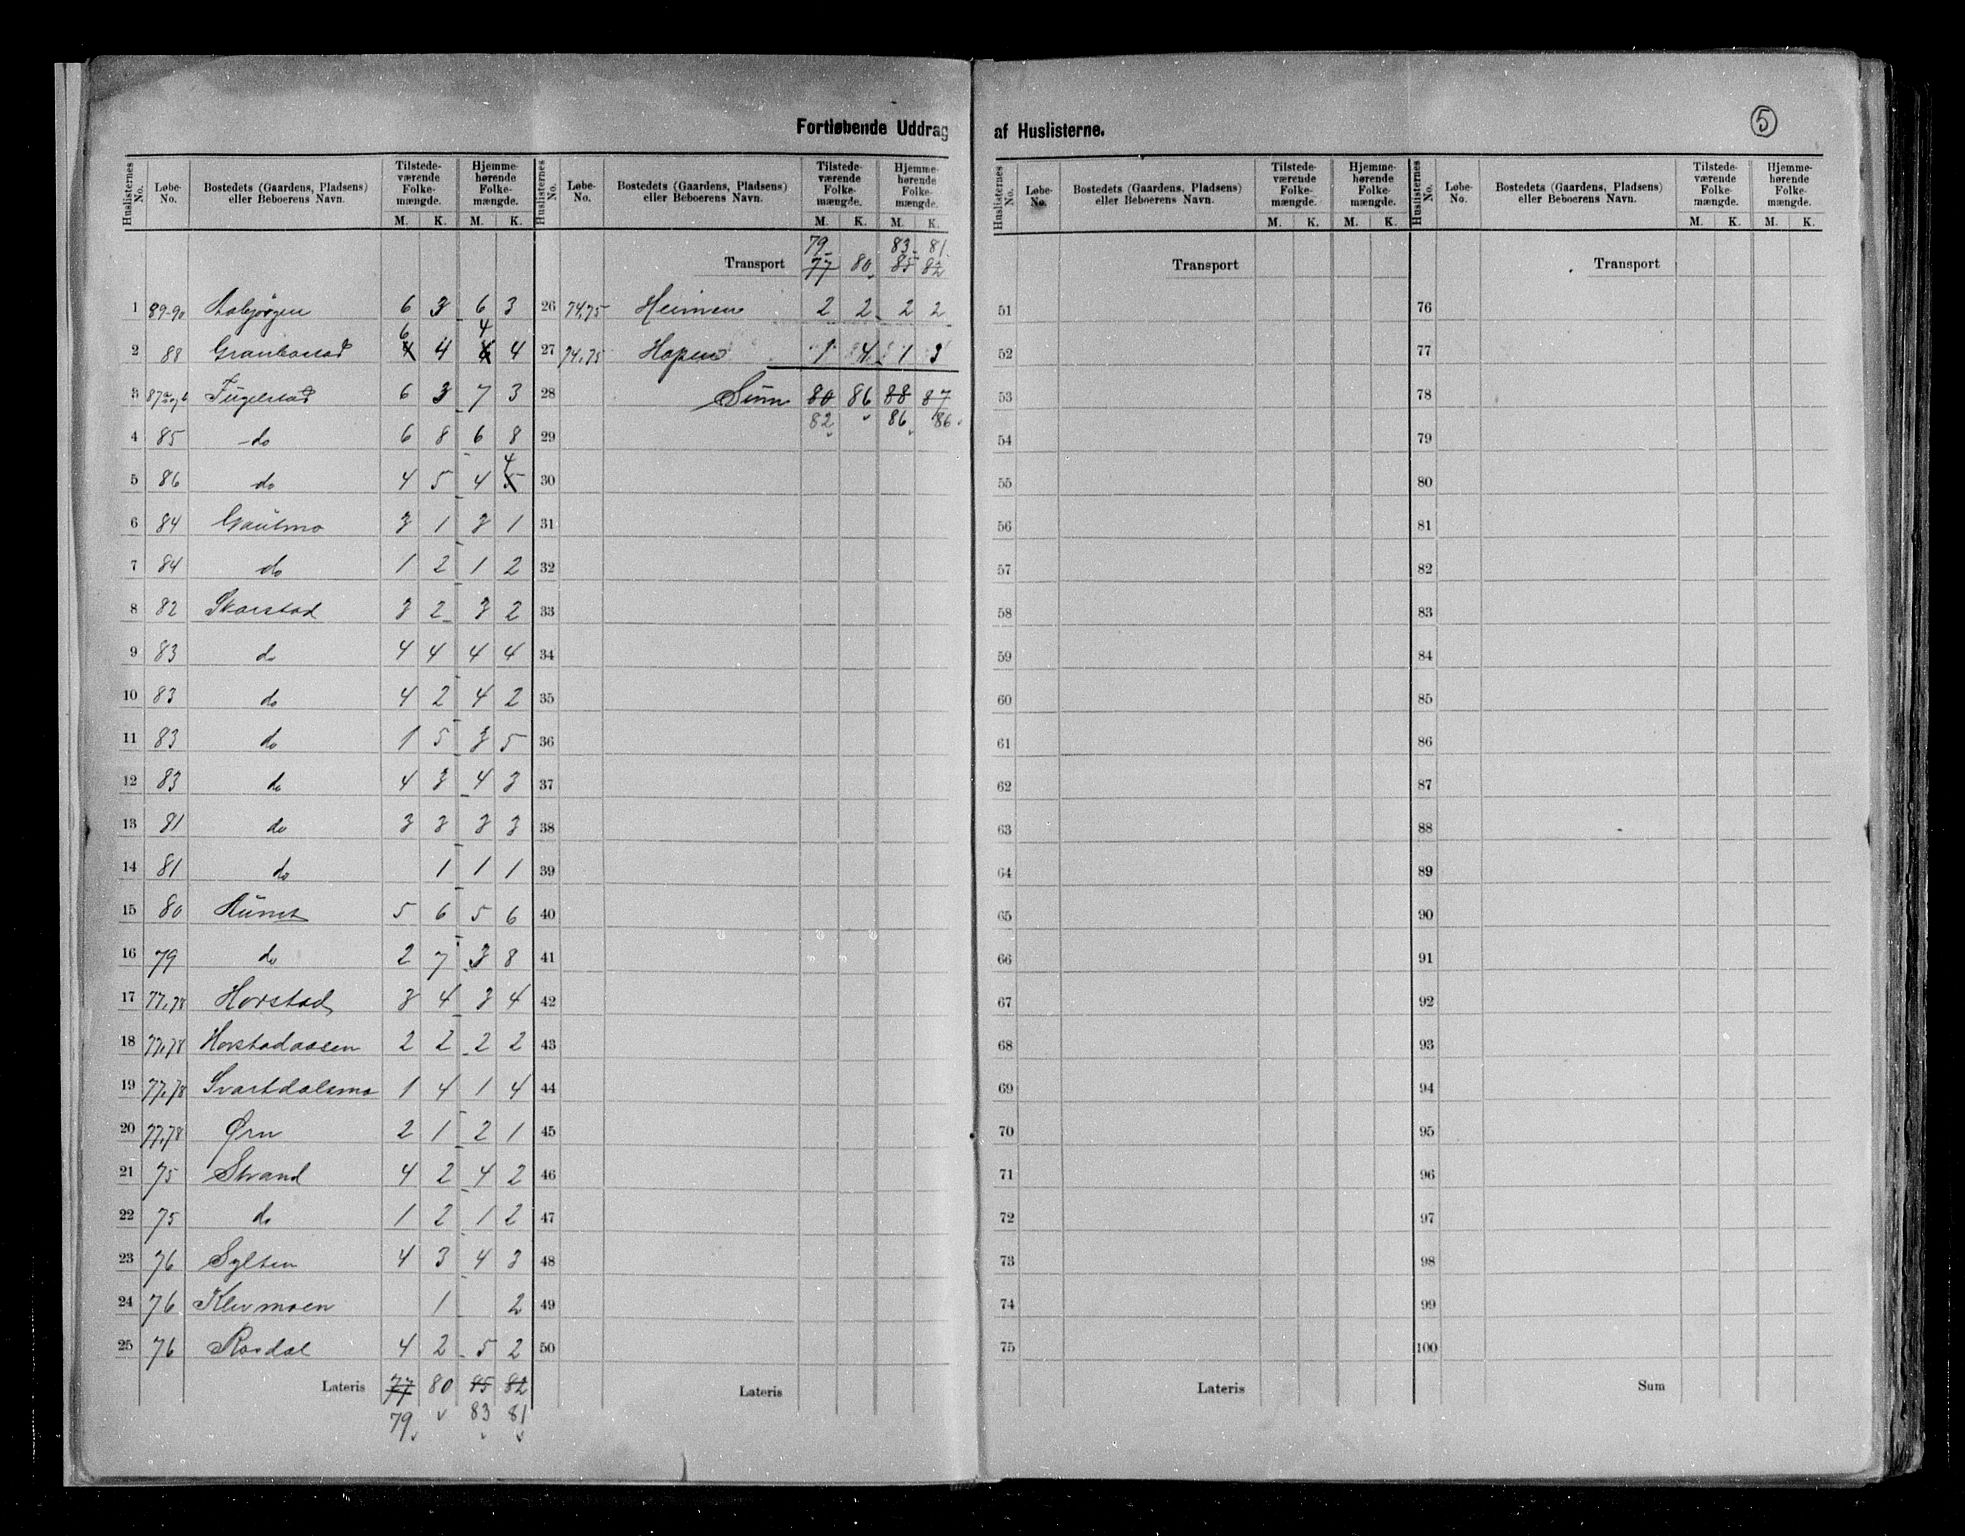 Fortløbende Uddrag af Huslisterne.
5
Huslisternes No. | Løbe-No. | Bostedets (Gaardens, Pladsens) eller Beboerens Navn. | Tilstedeværende Folkemængde. M. K. | Hjemmehørende Folkemængde. M. K.
1 89-90 6 3 6 3
2 88 6 4 4 4
3 Fugelstad 6 3 7 3
4 85 do 6 8 6 8
5 86 do 4 5 4 5 4
6 84 Gautmo 3 1 3 1
7 84 do 1 2 1 2
8 82 Skarstad 3 2 3 2
9 83 do 4 4 4 4
10 83 do 4 2 4 2
11 83 do 1 5 3 5
12 83 do 4 3 4 3
13 81 do 3 3 3 3
14 81 do 1 1 1
15 80 5 6 5 6
16 79 do 2 7 3 8
17 77,78 Horstad 3 4 3 4
18 77,78 Horstadaasen 2 2 2 2
19 77,78 Svartdalsmo 1 4 1 4
20 77,78 Ørn 2 1 2 1
21 75 Strand 4 2 4 2
22 75 do 1 2 1 2
23 76 Sylten 4 3 4 3
24 76 Klevmoen 1 2
25 76 Rosdal 4 2 5 2
Lateris 77 80 85 82
79 83 81
Huslisternes No. | Løbe-No. | Bostedets (Gaardens, Pladsens) eller Beboerens Navn. | Tilstedeværende Folkemængde. M. K. | Hjemmehørende Folkemængde. M. K.
79 83 81
Transport 77 80 85 82
26 74,75 Heimen 2 2 2 2
27 74,75 Hapen 1 4 1 3
28 Sum 80 86 88 87
82 86 86
29
30
31
32
33
34
35
36
37
38
39
40
41
42
43
44
45
46
47
48
49
50
Lateris
Huslisternes No. | Løbe-No. | Bostedets (Gaardens, Pladsens) eller Beboerens Navn. | Tilstedeværende Folkemængde. M. K. | Hjemmehørende Folkemængde. M. K.
Transport
51
52
53
54
55
56
57
58
59
60
61
62
63
64
65
66
67
68
69
70
71
72
73
74
75
Lateris
Huslisternes No. | Løbe-No. | Bostedets (Gaardens, Pladsens) eller Beboerens Navn. | Tilstedeværende Folkemængde. M. K. | Hjemmehørende Folkemængde. M. K.
Transport
76
77
78
79
80
81
82
83
84
85
86
87
88
89
90
91
92
93
94
95
96
97
98
99
100
Sum